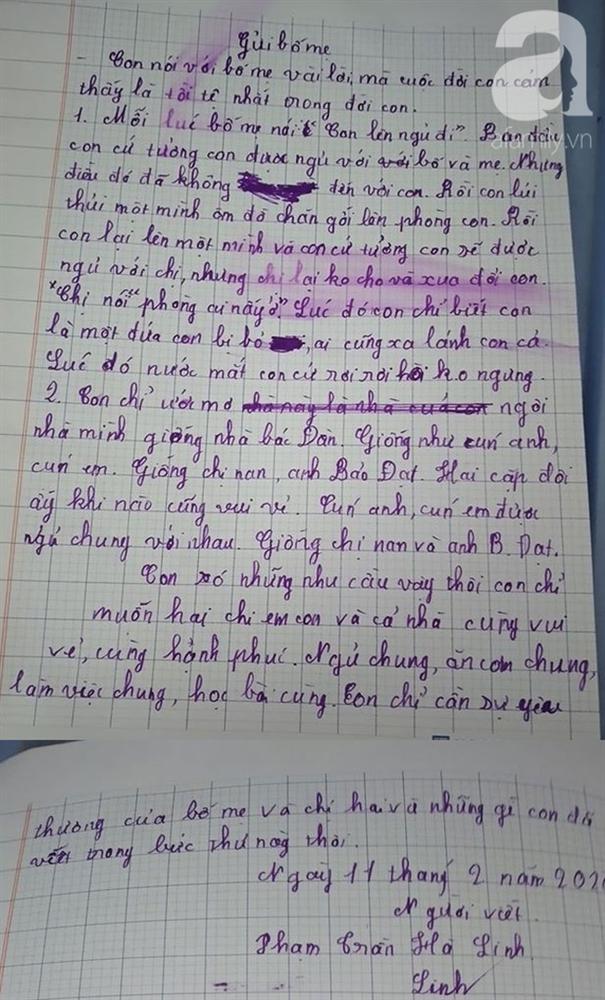 Gửi bố mẹ
- Con nói với bố mẹ vài lời, mà cuộc đời con cảm
thấy là tồi tệ nhất trong đời con.
1. Mỗi lúc bố mẹ nói "Con lên ngủ đi". Ban đầu
con cứ tưởng con được ngủ với bố và mẹ. Nhưng
điều đó đã không đến với con. Rồi con lủi
thủi một mình ôm đồ chăn gối lên phòng con. Rồi
con lại lên một mình và con cứ tưởng con sẽ được
ngủ với chị, nhưng chị lại ko cho và xua đổi con.
Chị nói "phòng ai nấy ở". Lúc đó con chỉ biết con
là một đứa con bị bỏ, ai cũng xa lánh con cả.
Lúc đó nước mắt con cứ rơi rơi ko ngưng.
2. Con chỉ ước mơ ngôi
nhà mình giống nhà bác Đàn. Giống như cún anh,
cún em. Giống chị nan, anh Bảo Đạt. Hai cặp đôi
ấy khi nào cũng vui vẻ. Cún anh, cún em được
ngủ chung với nhau. Giống chị nan và anh B. Đạt.
Con xó những nhu cầu vậy thôi con chỉ
muốn hai chị em con và cả nhà cùng vui
vẻ, cùng hạnh phúc. Ngủ chung, ăn cơm chung,
làm việc chung, học bà cùng. Con chỉ cần sự yêu
thương của bố mẹ và chị hai và những gì con đã
viết trong bức thư này thôi.
Ngày 11 tháng 2 năm 202
Người viết
Phạm Trần Hà Linh
Linh
afamily.vn